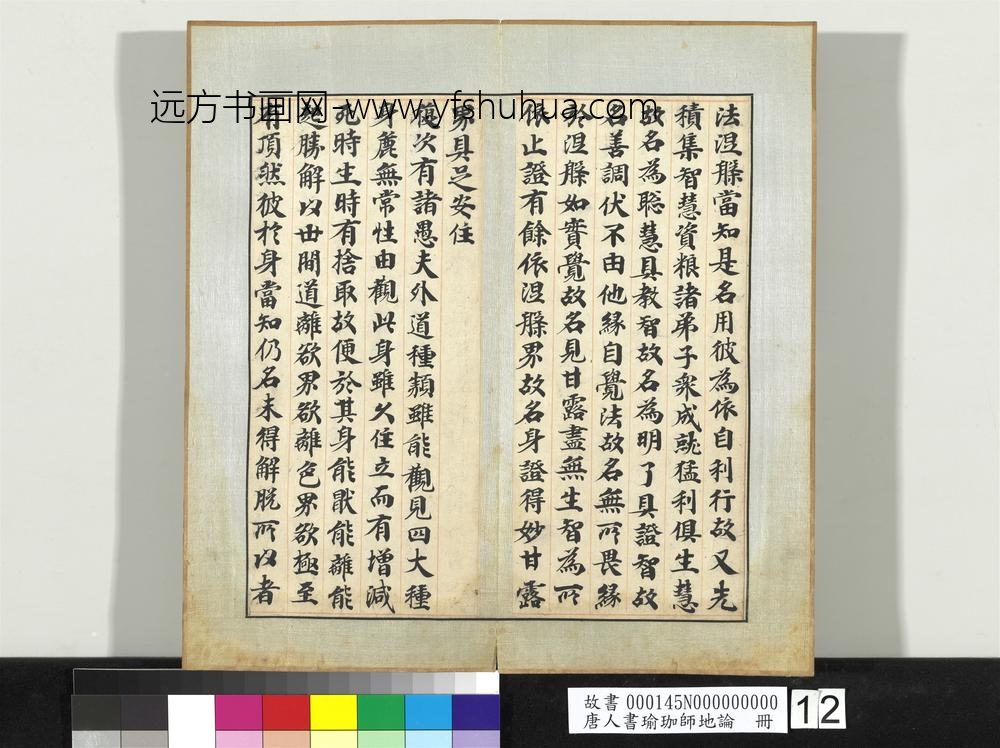 远方书画网-www.yfshuhua.com
法涅槃當知是名用彼為依自利行故又先
積集智慧資粮諸弟子衆成就猛利俱生慧
故名為聡慧具教智故名為明了具證智故
名善調伏不由他緣自覺法故名無所畏緣
於涅槃如實覺故名見甘露盡無生智為所
依止證有餘依涅槃界故名身證得妙甘露
界具足安住
復次有諸愚夫外道種類雖能觀見四大種
身麁無常性由觀此身雖久住立而有增減
死時生時有捨取故便於其身能猒能離能
起勝解以世間道離欲界欲離色界欲極至
有頂然彼於身當知仍名未得解脱所以者
故書 000145N000000000
唐人書瑜珈師地論 冊
12